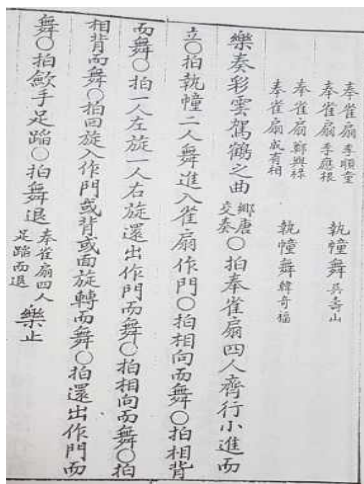 奉雀扇 李順堂
奉雀扇 李應根
執幢舞 吳壽山
奉雀扇 鄭興祿
奉雀扇 成有相
執幢舞 韓奇福
樂奏彩雲駕鶴之曲 鄕唐交奏 ○拍奉雀扇四人齊行小進而
立○拍執幢二人舞進入雀扇作門○拍相向而舞○拍相背
而舞○拍一人左旋一人右旋還出作門而舞○拍相向而舞○拍
相背而舞○拍回旋入作門或背或面旋轉而舞○拍還出作門而
舞○拍斂手足蹈○拍舞退 奉雀扇四人足蹈而退 樂止